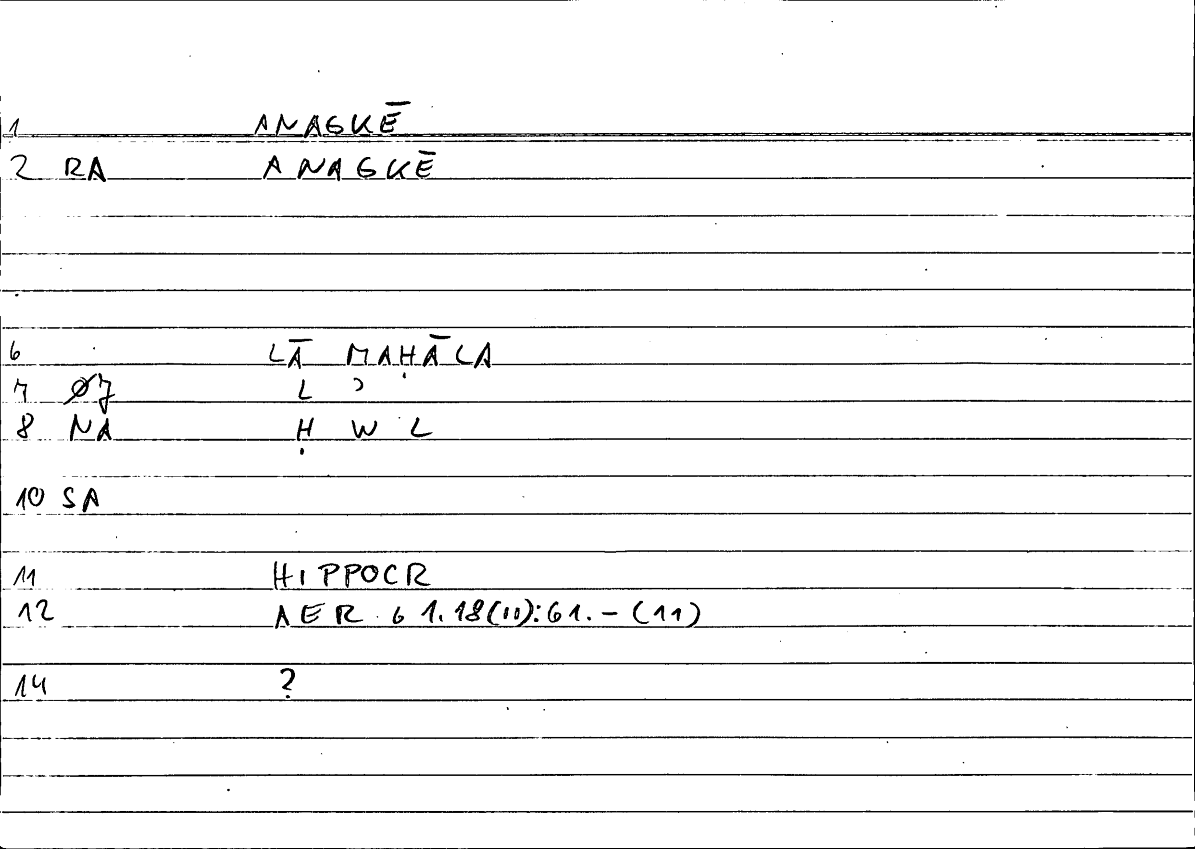 1 ANAGKĒ
2 RA ANAGKĒ
6 LĀ MAḤĀLA
7 Ø7 L ʾ
8 NA Ḥ W L
10 SA
11 HIPPOCR
12 AER 61.18(11):61.-(11)
14 ?